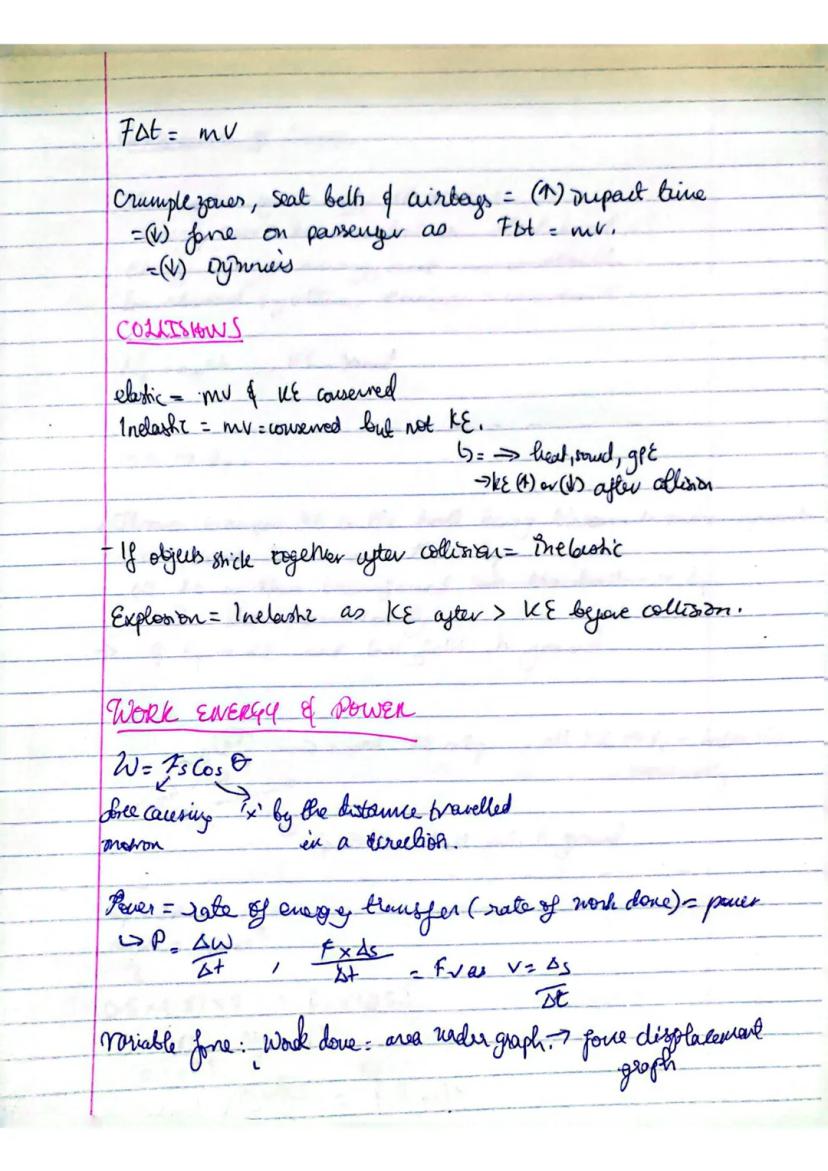 FΔt = mv
Crumple zones, seat belts & airbags = (↑) impact time
=(↓) force on passenger as FΔt = mv.
=(↓) injuries
COLLISIONS
elastic = mv & KE conserved
Inelastic = mv = conserved but not KE.
↳ = → heat, sound, gpE
→ KE (↑) or (↓) after collision
- If objects stick together after collision = inelastic
Explosion = Inelastic as KE after > KE before collision.
WORK ENERGY & POWER
W = Fs Cos θ
force causing 'x' by the distance travelled
motion in a direction.
Power = rate of energy transfer (rate of work done) = power
↳ P = ΔW/Δt , F x Δs/Δt = Fv as v = Δs/Δt
Variable force: Work done = area under graph. → force displacement
graph